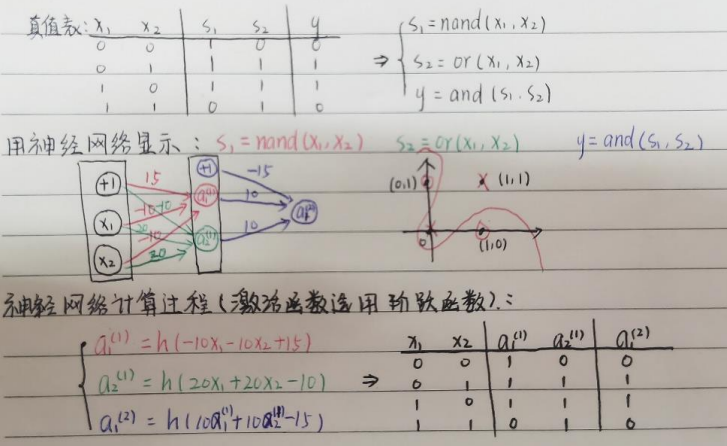 真值表: x₁ x₂ s₁ s₂ y
0 0 1 0 0
0 1 1 1 1
1 0 1 1 1
1 1 0 1 0
⇒ { s₁=nand(x₁,x₂)
s₂=or(x₁,x₂)
y=and(s₁.s₂)
用神经网络显示: s₁=nand(x₁,x₂) s₂=or(x₁,x₂) y=and(s₁,s₂)
+1 15 +1 -15
-10 -10 a₁⁽¹⁾ 10 a₁⁽²⁾
x₁ 20
-10 a₂⁽¹⁾ 10
x₂ 20
(0,1) (1,1)
0 (1,0)
神经网络计算过程(激活函数选用阶跃函数):
{ a₁⁽¹⁾=h(-10x₁-10x₂+15)
a₂⁽¹⁾=h(20x₁+20x₂-10) ⇒
a₁⁽²⁾=h(10a₁⁽¹⁾+10a₂⁽¹⁾-15)
x₁ x₂ a₁⁽¹⁾ a₂⁽¹⁾ a₁⁽²⁾
0 0 1 0 0
0 1 1 1 1
1 0 1 1 1
1 1 0 1 0